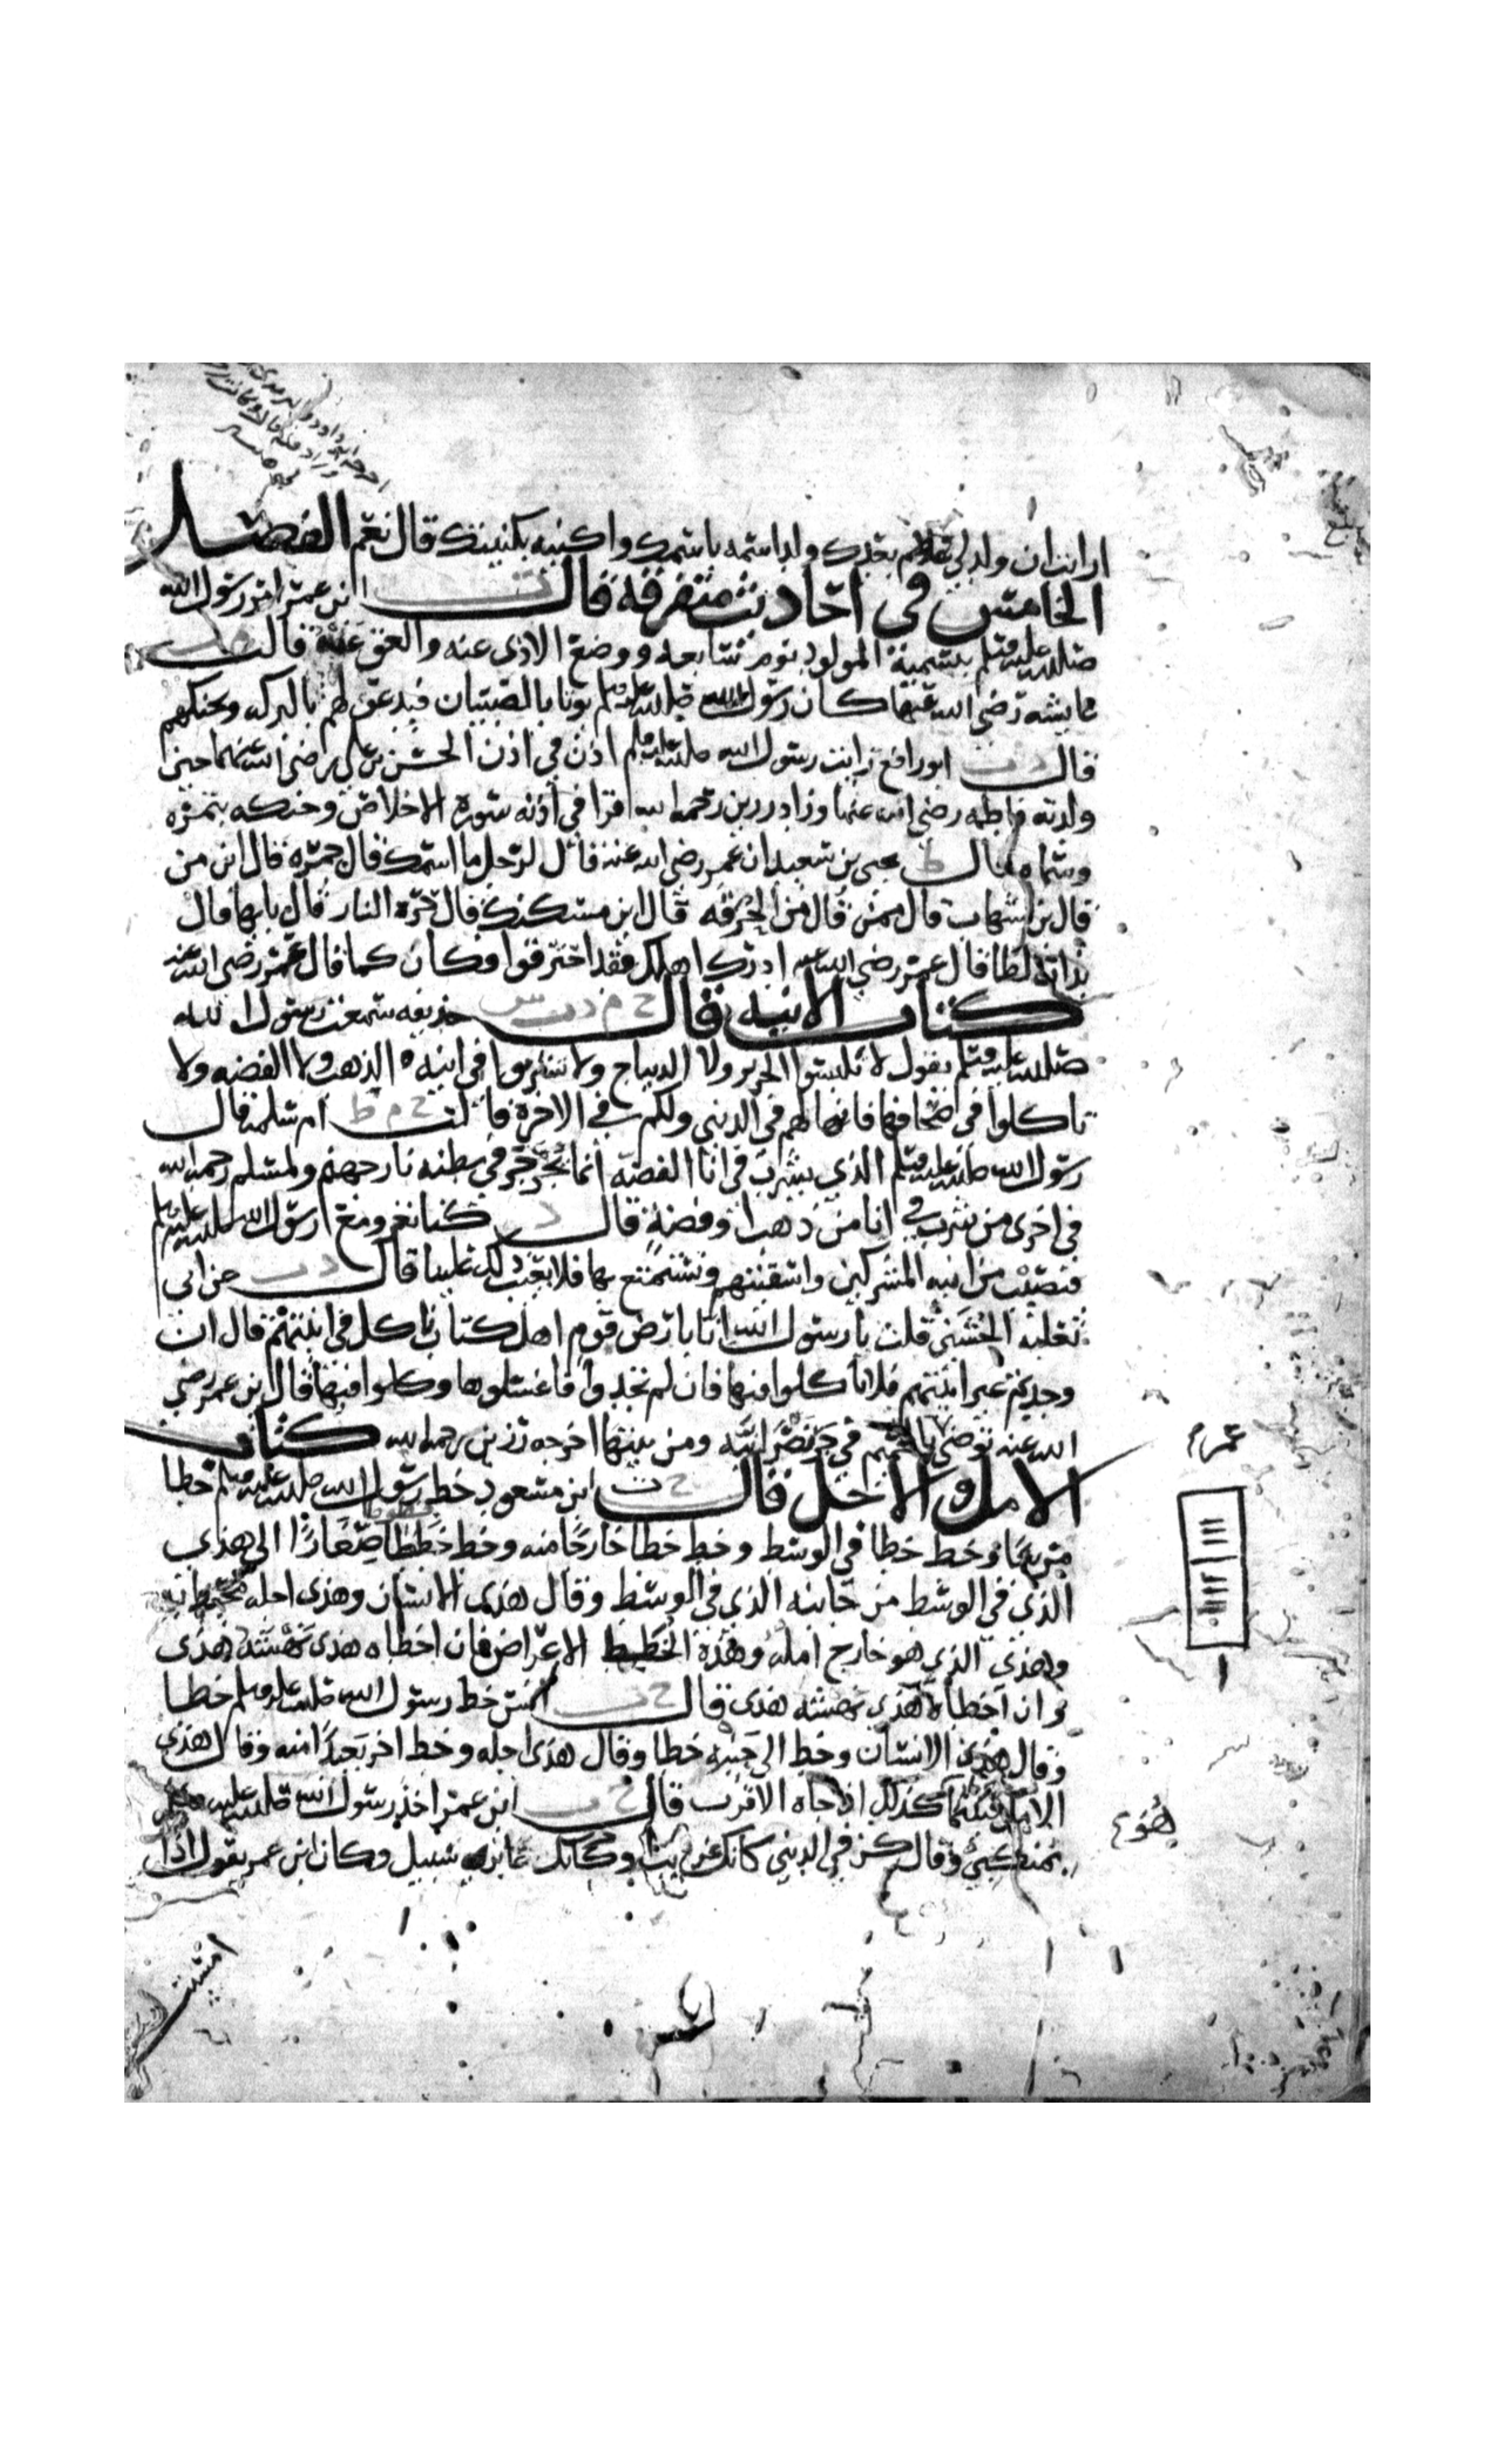 ارايت ان ولد لي بعدك ولد اسمه باسمك واكنيه بكنيتك قال نعم الفصل
الخامس في احاديث متفرقه قال ت ابن عمر امر رسول الله
صلى الله عليه وسلم بتسمية المولود يوم سابعه ووضع الاذى عنه والعق عنه قالت
عايشه رضي الله عنها كان رسول الله صلى الله عليه وسلم يوتا بالصبيان فيدعو لهم بالبركه ويحنكهم
قال د ت ابو رافع رايت رسول الله صلى الله عليه وسلم اذن في اذن الحسن بن علي رضي الله عنهما حين
ولدته فاطمه رضي الله عنها وزاد رزين رحمه الله اقرا في اذنه سورة الاخلاص وحنكه بتمره
وسماه قال ط يحيى بن سعيد ان عمر رضي الله عنه قال لرجل ما اسمك قال جمره قال ابن من
قال بن شهاب قال ممن قال من الحرقه قال اين مسكنك قال حرة النار قال بايها قال
بذات لظا قال عمر رضي الله عنه ادرك اهلك فقد احترقوا فكان كما قال عمر رضي الله عنه
كتاب الانيه قال خ م د ت س حذيفه سمعت رسول الله
صلى الله عليه وسلم يقول لا تلبسوا الحرير ولا الديباج ولا تشربوا في انية الذهب ولا الفضه ولا
تاكلوا في صحافها فانها لهم في الدنيى ولكم في الاخرة قالت خ م ط ام سلمه قال
رسول الله صلى الله عليه وسلم الذي يشرب في انا الفضه انما يجرجر في بطنه نار جهنم ولمسلم رحمه الله
في اخرى من شرب في انا من ذهب او فضة قال د كنا نغزو مع رسول الله صلى الله عليه وسلم
فنصيب من انية المشركين واسقيتهم ونستمتع بها فلا يعيب ذلك علينا قال د ت عن ابي
ثعلبه الخشني قلت يا رسول الله انا بارض قوم اهل كتاب ناكل في انيتهم قال ان
وجدتم غير انيتهم فلا تاكلوا فيها فان لم تجدوا فاغسلوها وكلوا فيها قال ابن عمر رضي
الله عنه توضى بالحميم في جر نصرانيه ومن بيتها اخرجه رزين رحمه الله كتاب
الامل والاجل قال خ ت ابن مسعود خط رسول الله صلى الله عليه وسلم خطا
مربعا وخط خطا في الوسط وخط خطا خارجا منه وخط خططا صغارا الى هذى
الذي في الوسط من جانبه الذي في الوسط وقال هذى الانسان وهذى اجله محيط به
وهذى الذي هو خارج امله وهذه الخطط الاعراض فان اخطاه هذى نهشه هذى
وان اخطاه هذى نهشه هذى قال خ ت انس خط رسول الله صلى الله عليه وسلم خطا
وقال هذى الانسان وخط الى جنبه خطا وقال هذى اجله وخط اخر بعيدا منه وقال هذى
الامل فبينما كذلك اذ جاه الاقرب قال خ ت ابن عمر اخذ رسول الله صلى الله عليه وسلم
بمنكبي وقال كن في الدنيى كانك غريب وكانك عابر سبيل وكان ابن عمر يقول اذا
امسيت